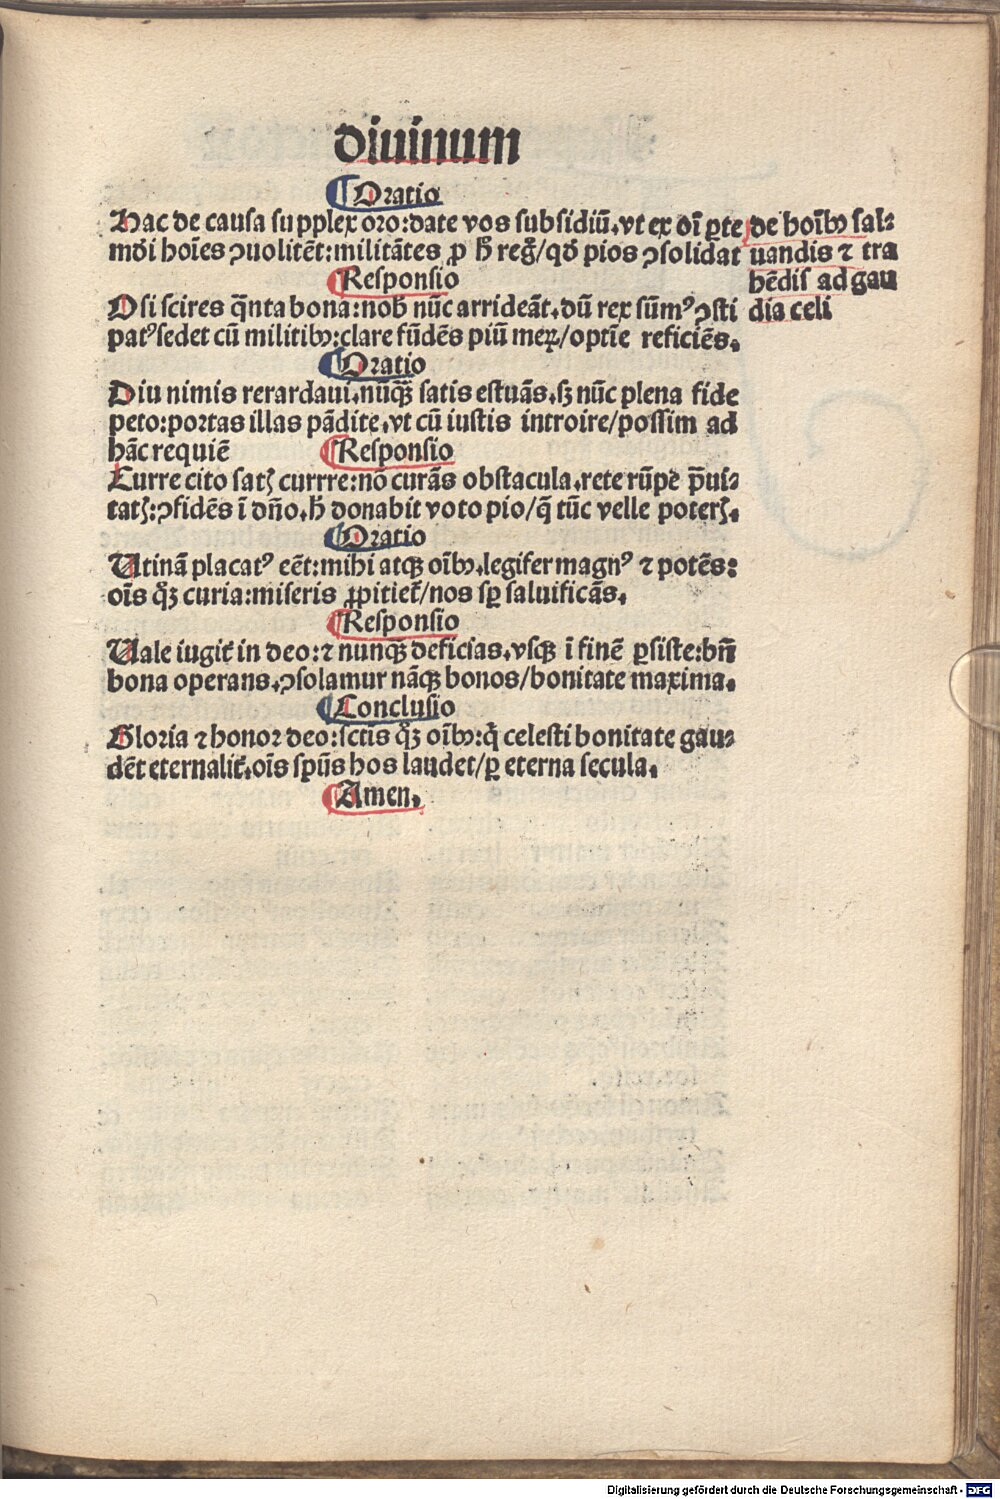 diuinum
¶ Oratio
Hac de causa supplex oro:date vos subsidiū.vt ex oī ꝑte
mōi hoīes ꝯuolitēt:militātes ꝓ ħ reg̃/qđ pios ꝯsolidat
de hoībꝰ sal⸗
uandis ⁊ tra
hēdis ad gau
dia celi
¶ Responsio
O si scires q̄nta bona:nob̄ nūc arrideāt.dū rex sūmꝰ ꝯsti
patꝰ sedet cū militibꝰ:clare fūdēs piū meꝝ/optīe reficiēs.
¶ Oratio
Diu nimis rerardaui.nūqꝫ satis estuās.sꝫ nūc plena fide
peto:portas illas pādite.vt cū iustis introire/possim ad
hāc requiē
¶ Responsio
Curre cito satꝫ currre:nō curās obstacula.rete rūpe p̄ui⸗
tatꝫ:ꝯfidēs ī dño.ħ donabit voto pio/q̄ tūc velle poterꝫ.
¶ Oratio
Utinā placatꝰ eēt:mihi atqꝫ oībꝰ.legifer magnꝰ ⁊ potēs:
oīs qꝫ curia:miseris ꝓpitiet̄/nos sꝑ saluificās.
¶ Responsio
Uale iugit̄ in deo:⁊ nunqꝫ deficias.vsqꝫ ī finē ꝑsiste:bn̄
bona operans.ꝯsolamur nāqꝫ bonos/bonitate maxima.
¶ Conclusio
Gloria ⁊ honor deo:sctīs qꝫ oībꝰ:q̇ celesti bonitate gau⸗
dēt eternalit̄.oīs sp̄ūs hos laudet/ꝑ eterna secula.
¶ Amen.
Digitalisierung gefördert durch die Deutsche Forschungsgemeinschaft - DFG